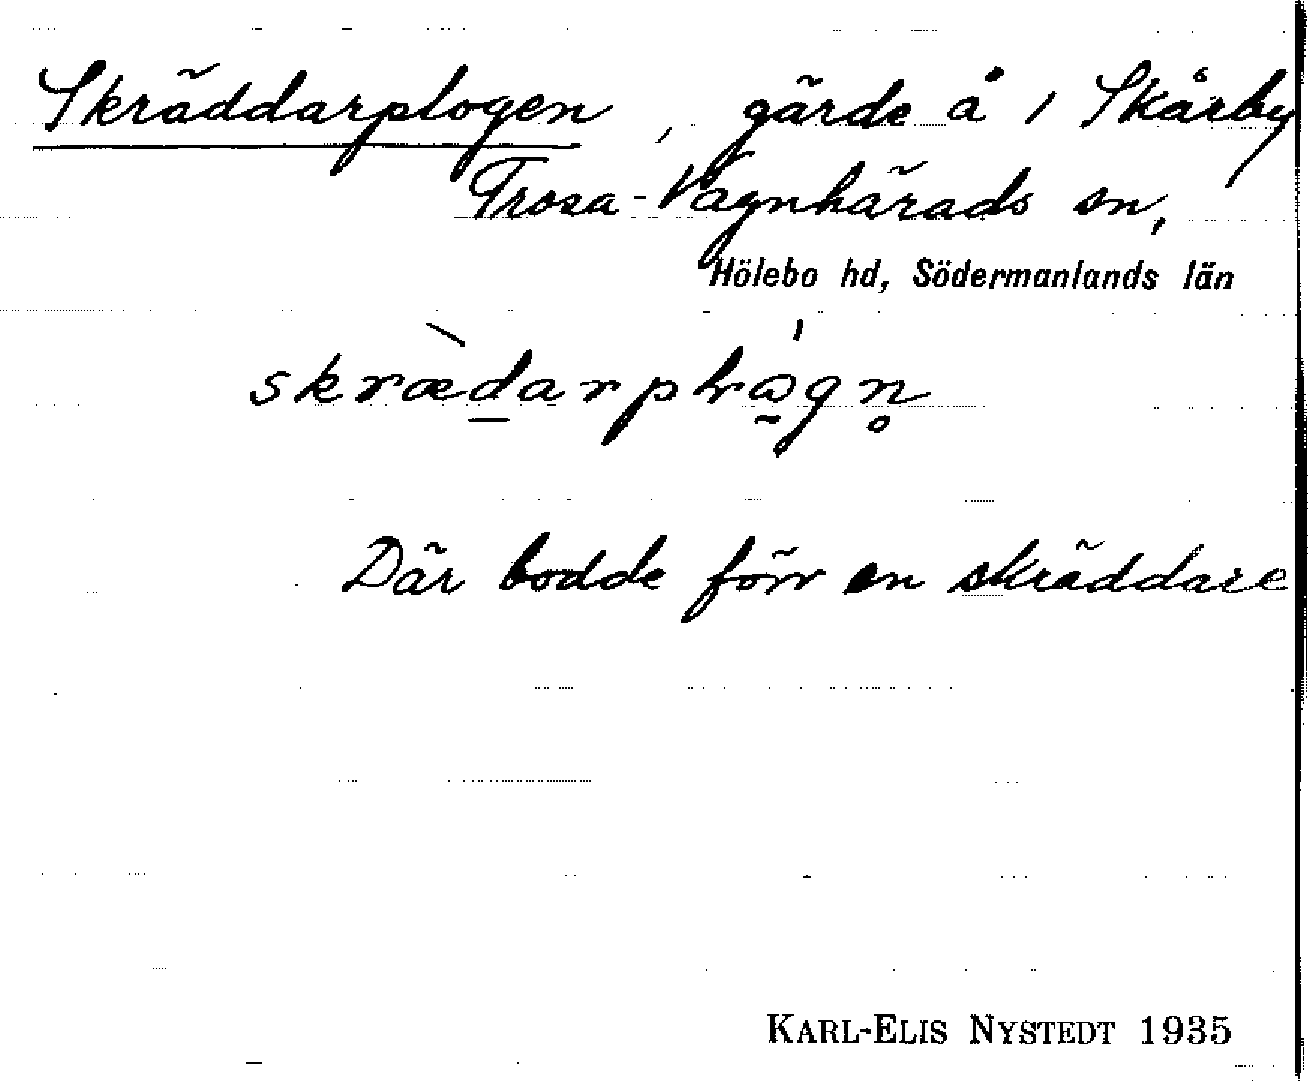 Skräddarplogen, gärde å 1 Skärby
Trosa-Vagnhärads sn,
Hölebo hd, Södermanlands län
Där bodde förr en skräddare
KARL-ELIS NYSTEDT 1935